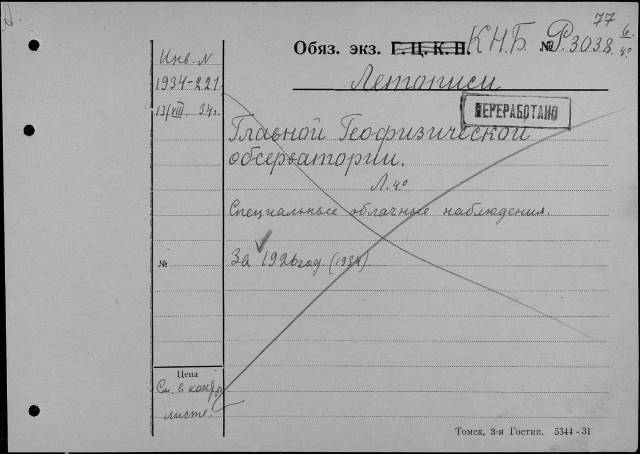 77
Обяз. экз. Г. Ц. К. П. К.Н.Б. № Р.3038 6/4°
Инв. N
1934-221
13/VIII 34г.
Летописи
ПЕРЕРАБОТАНО
Главной Геофизической
обсерватории.
Л. 4°
Специальные облачные наблюдения.
№
За 1926 год (1934).
Цена
См. в контр.
листе.
Томск, 3-я Гостип. 5344-31